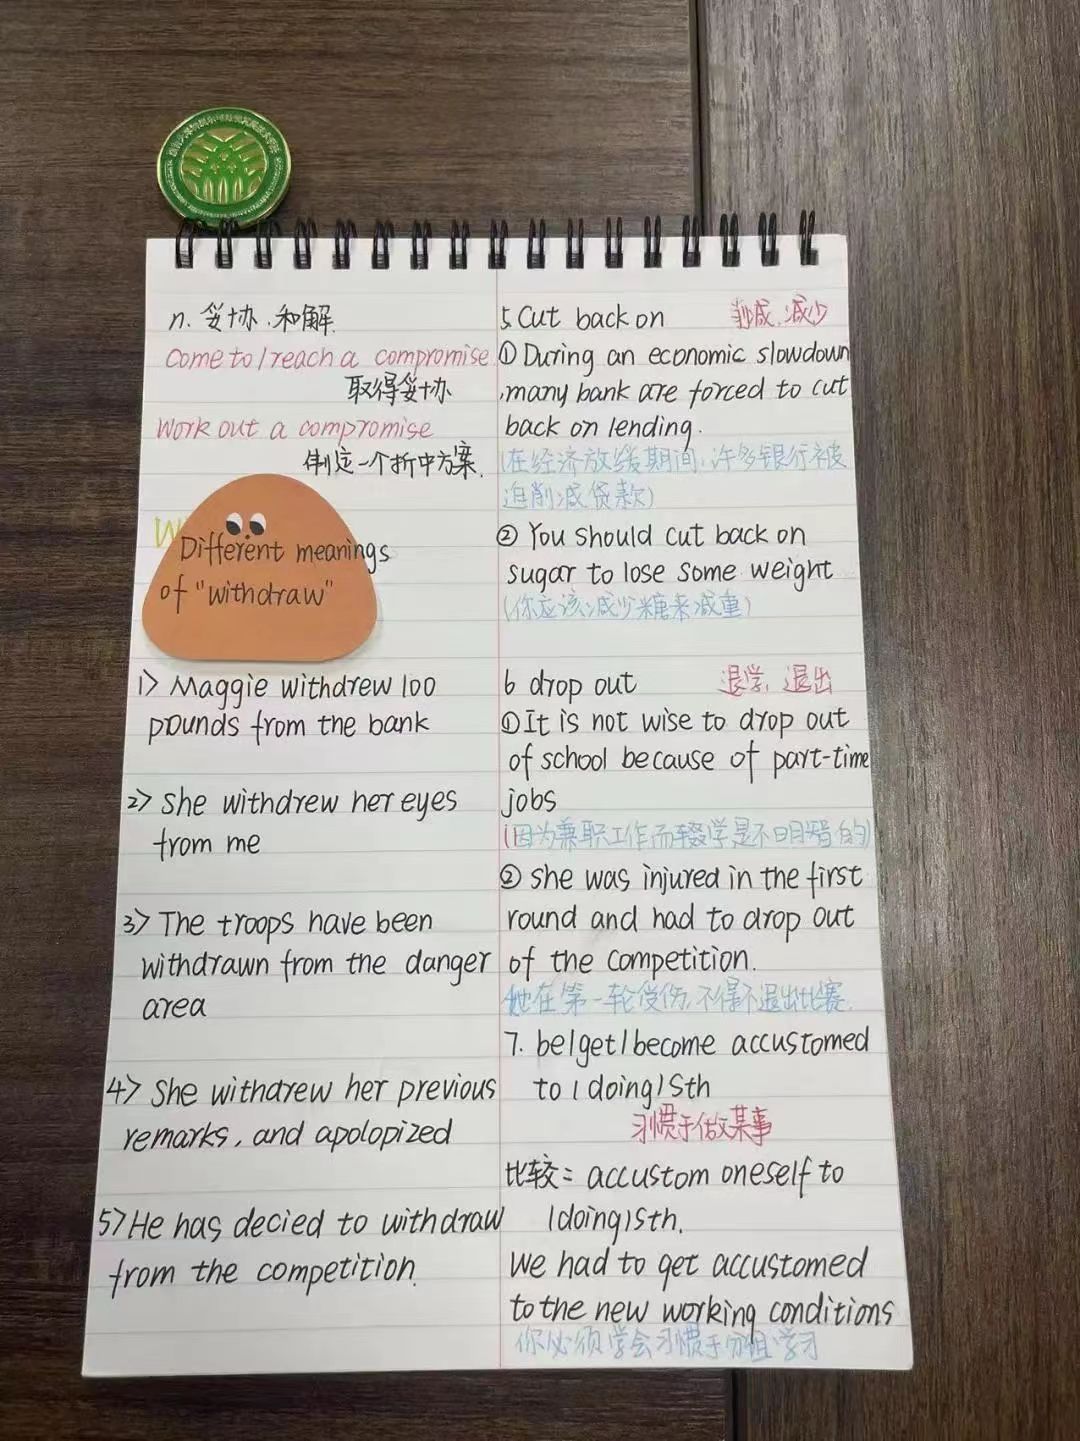 n. 妥协.和解.
Come to / reach a compromise.
取得妥协
Work out a compromise
制定一个折中方案.
W
Different meanings
of "withdraw"
1> Maggie withdrew 100
pounds from the bank
2> She withdrew her eyes
from me
3> The troops have been
withdrawn from the danger
area
4> She withdrew her previous
remarks, and apolopized
5> He has decied to withdraw
from the competition.
5. Cut back on 削减.减少
① During an economic slowdown
,many bank are forced to cut
back on lending.
(在经济放缓期间,许多银行被
迫削减贷款)
② You should cut back on
sugar to lose some weight
(你应该减少糖来减重)
6 drop out 退学, 退出
① It is not wise to drop out
of school because of part-time
jobs
(因为兼职工作而辍学是不明智的)
② she was injured in the first
round and had to drop out
of the competition.
她在第一轮受伤,不得不退出比赛.
7. be/get/become accustomed
to (doing) Sth
习惯于做某事
比较: accustom oneself to
(doing) Sth.
We had to get accustomed
to the new working conditions
你必须学会习惯于分组学习